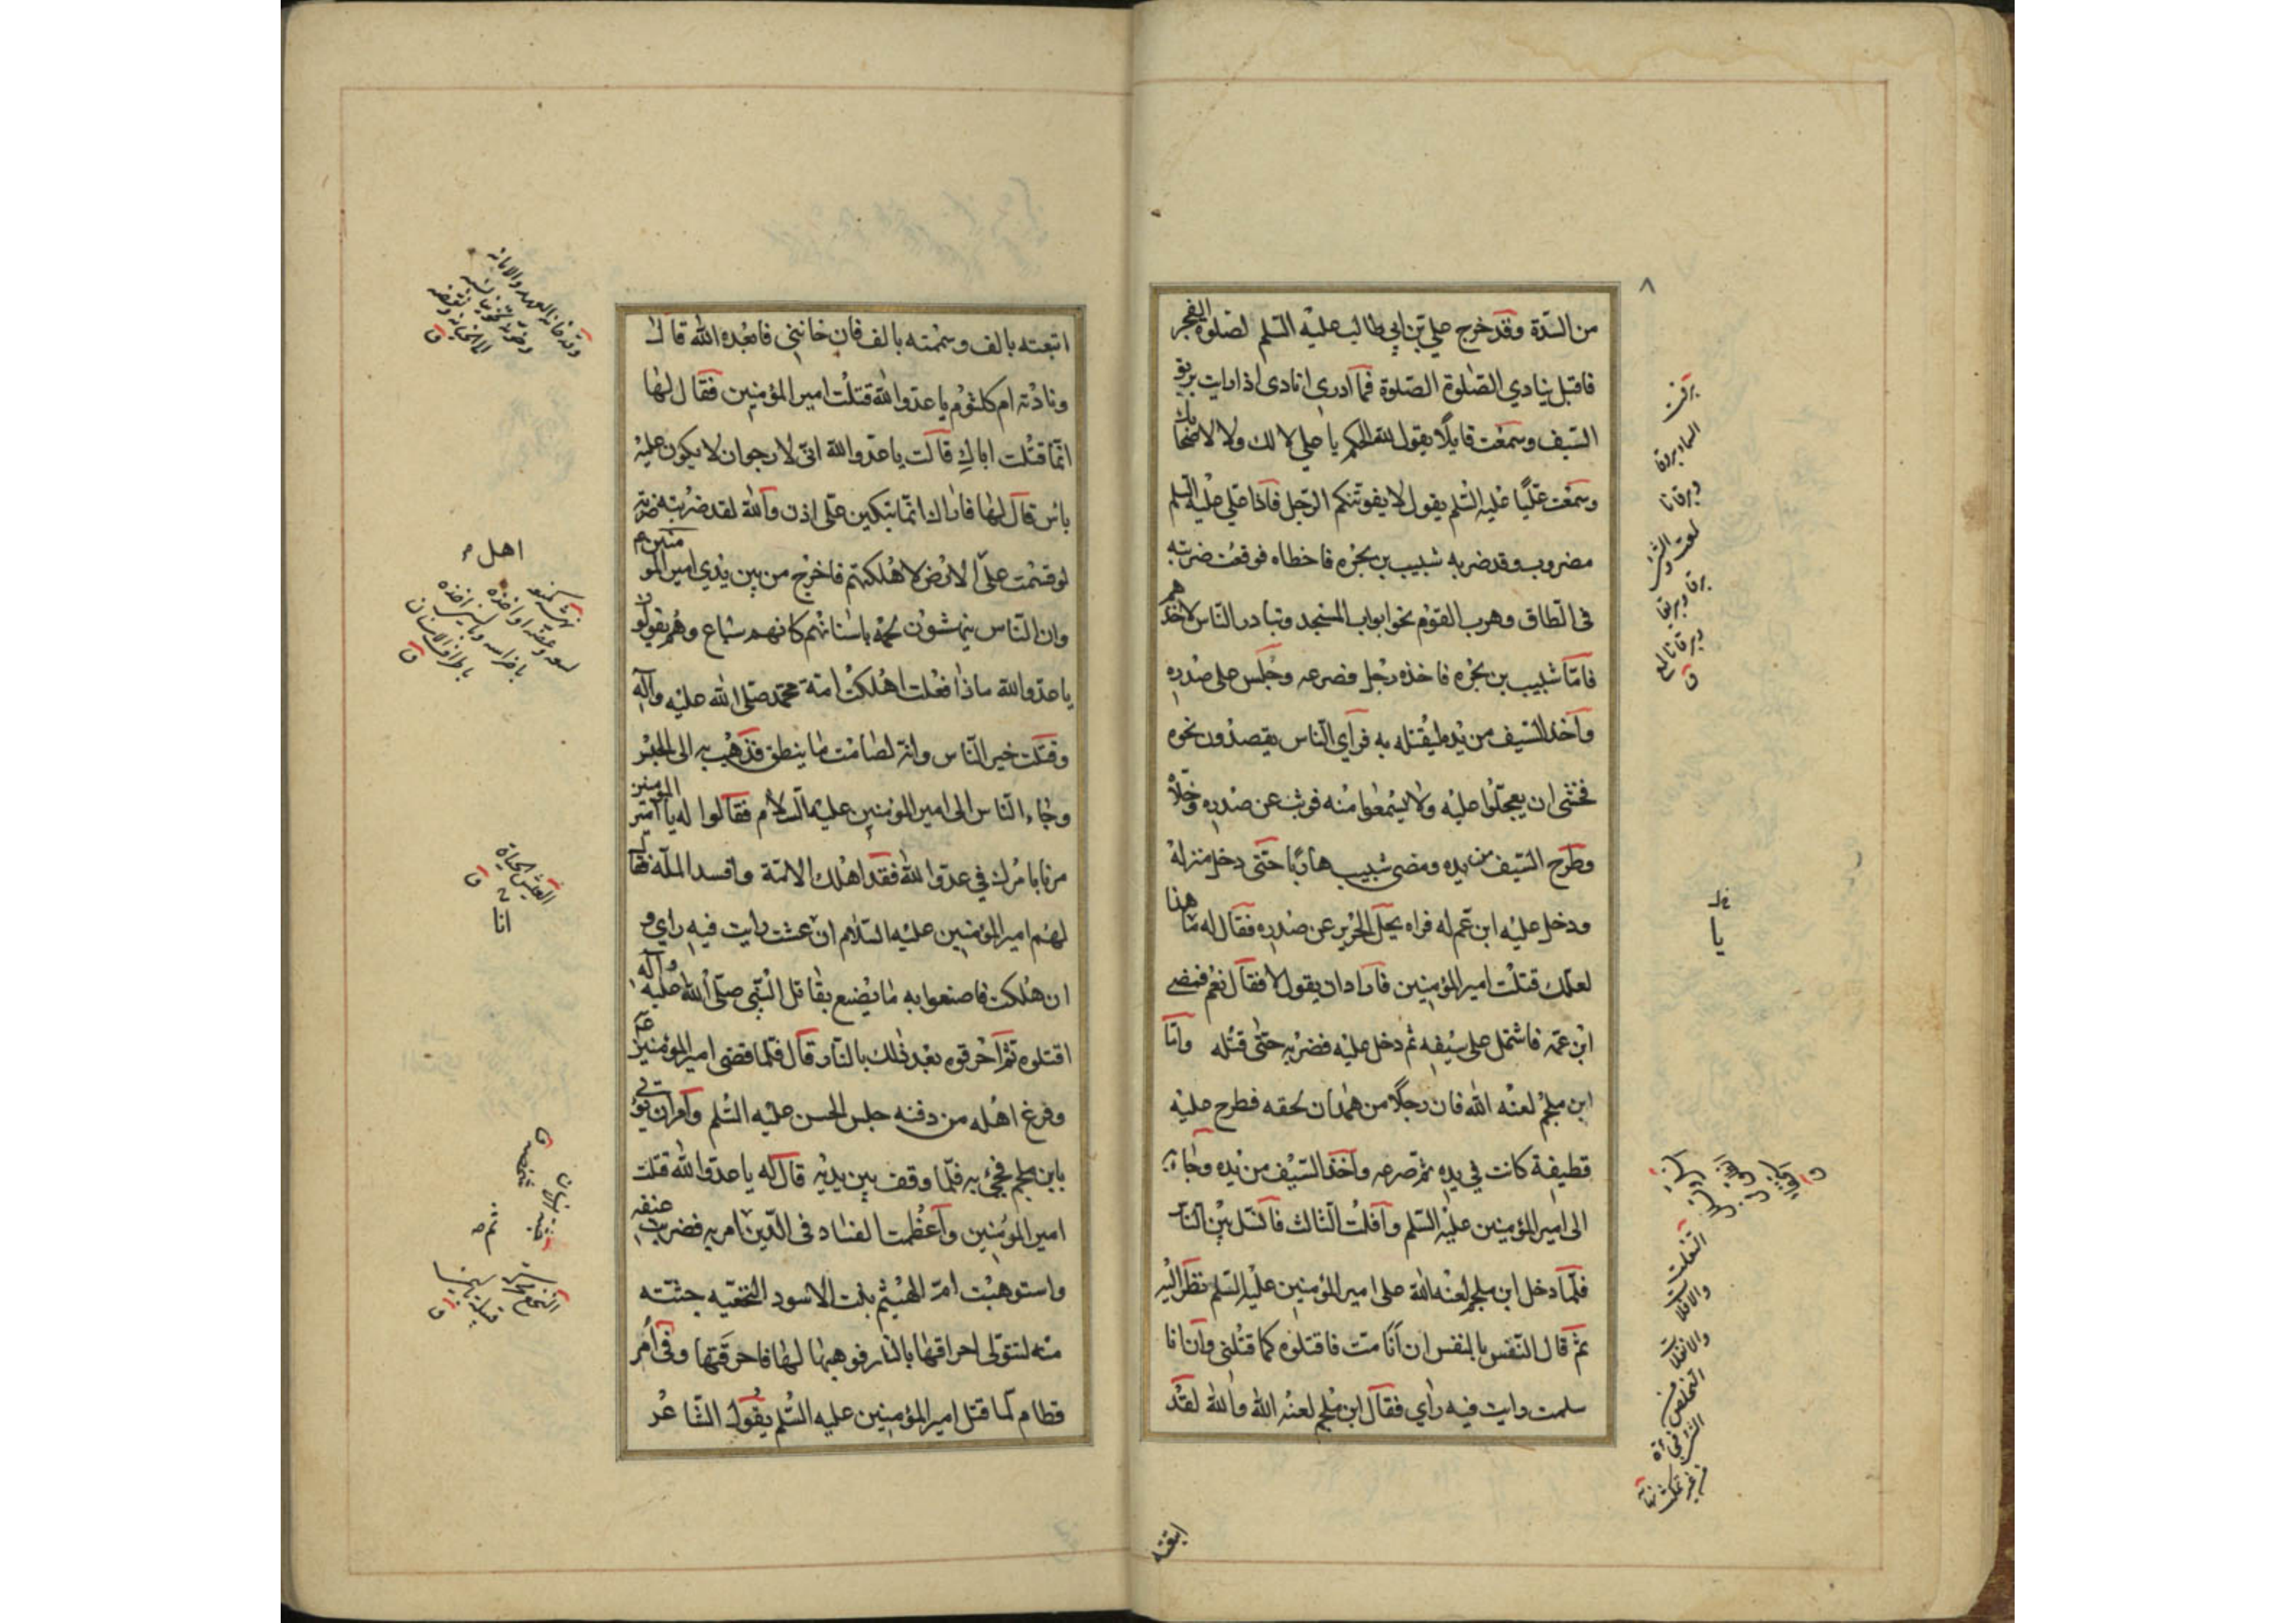 من السّدة وقد خرج علي بن ابي طالب عليه السّلم لصلوة الفجر
فاقبل ينادي الصّلوة الصّلوة فما أدري انادى اذا رايت بريق
السّيف وسمعت قايلًا يقول لله الحكم يا علي لا لك ولا لاصحابك
وسمعت عليًا عليه السّلم يقول لا يفوتنكم الرّجل فاذا علي عليه السلم
مضروب وقد ضربه شبيب بن بجره فاخطاه فوقعت ضربته
في الطّاق وهرب القوم نحو ابواب المسجد وتبادر النّاس لاخذهم
فامّا شبيب بن بجره فاخذه رجل فصرعه وجلس على صدره
وأخذ السّيف من يده ليقتله به فرأي النّاس يقصدون نحوه
فخشى ان يعجّلوا عليه ولا يسمعوا منه فوثب عن صدره وخلّاه
وطرح السّيف من يده ومضى شبيب هاربًا حتّى دخل منزله
ودخل عليه ابن عم له فراه يحلّ الحرير عن صدره فقال له ما هذا
لعلّك قتلت امير المؤمنين فاراد ان يقول لا فقال نعم فمضى
ابن عمّه فاشتمل على سيفه ثم دخل عليه فضربه حتّى قتله وامّا
ابن ملجم لعنه الله فان رجلًا من همدان لحقه فطرح عليه
قطيفة كانت في يده ثمّ صرعه وأخذ السّيف من يده وجاء به
الى امير المؤمنين عليه السّلم وافلت الثّالث فانسّل بين النّاس
فلمّا دخل ابن ملجم لعنه الله على امير المؤمنين عليه السّلم نظر اليه
ثمّ قال النّفس بالنفس ان انا متّ فاقتلوه كما قتلني وان انا
سلمت رايت فيه رأي فقال ابن ملجم لعنه الله والله لقد
ابتعته
ابتعته بالف وسممته بالف فان خانني فابعده الله قال
ونادته ام كلثوم يا عدوّ الله قتلت امير المؤمنين فقال لها
انّما قتلت اباكِ قالت يا عدّو الله انّي لارجو ان لا يكون عليه
باس قال لها فاراك انّما تبكين عليّ اذن والله لقد ضربته ضربة
لو قسمت على الارض لاهلكتهم فاخرج من بين يدي امير المؤمنين ع
وان النّاس ينهشون لحمه باسنانهم كانهم سباع وهم يقولون
يا عدّو الله ماذا فعلت اهلكت امّة محمّد صلّى الله عليه وآله
وقتلت خير النّاس وانّه لصامت ما ينطق فذهب به الى الحبس
وجاء النّاس الى امير المؤمنين عليه السّلام فقالوا له يا امير المؤمنين
مرنا بامرك في عدّو الله فقد اهلك الامّة وافسد الملّة فقال
لهم امير المؤمنين عليه السّلام ان عشت رايت فيه راي و
ان هلكت فاصنعوا به ما يصنع بقاتل النّبي صلّى الله عليه وآله
اقتلوه ثمّ احرقوه بعد ذلك بالنّار قال فلمّا قضى امير المؤمنين ع
وفرغ اهله من دفنه جلس الحسن عليه السّلم وأمر ان يؤتى
بابن ملجم فجيء به فلمّا وقف بين يديه قال له يا عدّو الله قتلت
امير المؤمنين وأعظمت الفساد في الدّين ثم امر به فضرب عنقه
واستوهبت امّ الهيثم بنت الاسود النّخعيّه جثّته
منه لتتولّى احراقها بالنّار فوهبها لها فاحرقتها وفي أمر
قطام لما قتل امير المؤمنين عليه السّلم يقول الشّاعر
اهل
انا